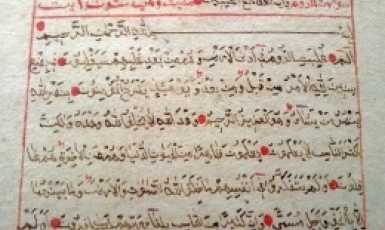 سورة الروم
بسم الله الرحمن الرحيم
الم غلبت الروم في أدنى الارض وهم من بعد غلبهم سيغلبون في بضع
سنين لله الامر من قبل ومن بعد ويومئذ يفرح المومنون بنصر الله
ينصر من يشاء وهو العزيز الرحيم وعد الله لا يخلف الله وعده ولكن
اكثر الناس لا يعلمون يعلمون ظهرا من الحيوة الدنيا وهم عن الاخرة هم غا
فلون اولم يتفكروا في انفسهم ما خلق الله السموت والارض وما بينهما
الا بالحق واجل مسمى وان كثيرا من الناس بلقاء ربهم لكفرون اولم